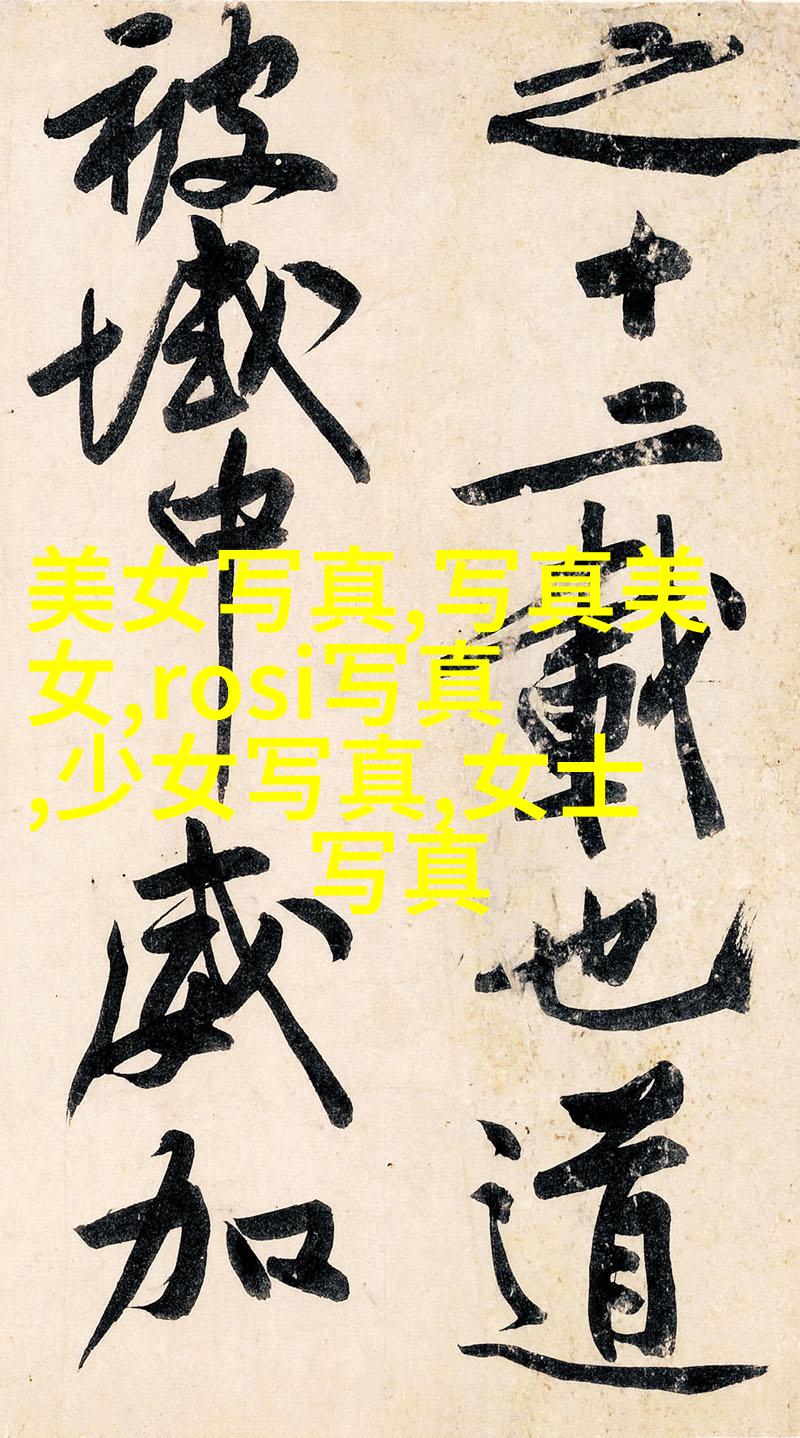 之十二載也道
被域中威加
美女写真,写真美
女,rosi写真
,少女写真,女士
写真